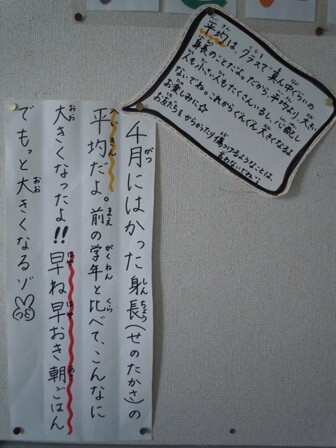 平均は、クラスで真ん中くらいの
身長のことだよ。だから、平均より大きい
人も小さい人もたくさんいるし、心配し
ないでね。これからぐんぐん大きくなるよ
お楽しみに☆
お友だちをからかったり傷つけるようなことは、
4月にはかった身長(せのたかさ)の
平均だよ。前の学年と比べて、こんなに
大きくなったよ!!早ね早おき朝ごはん
でもっと大きくなるゾ